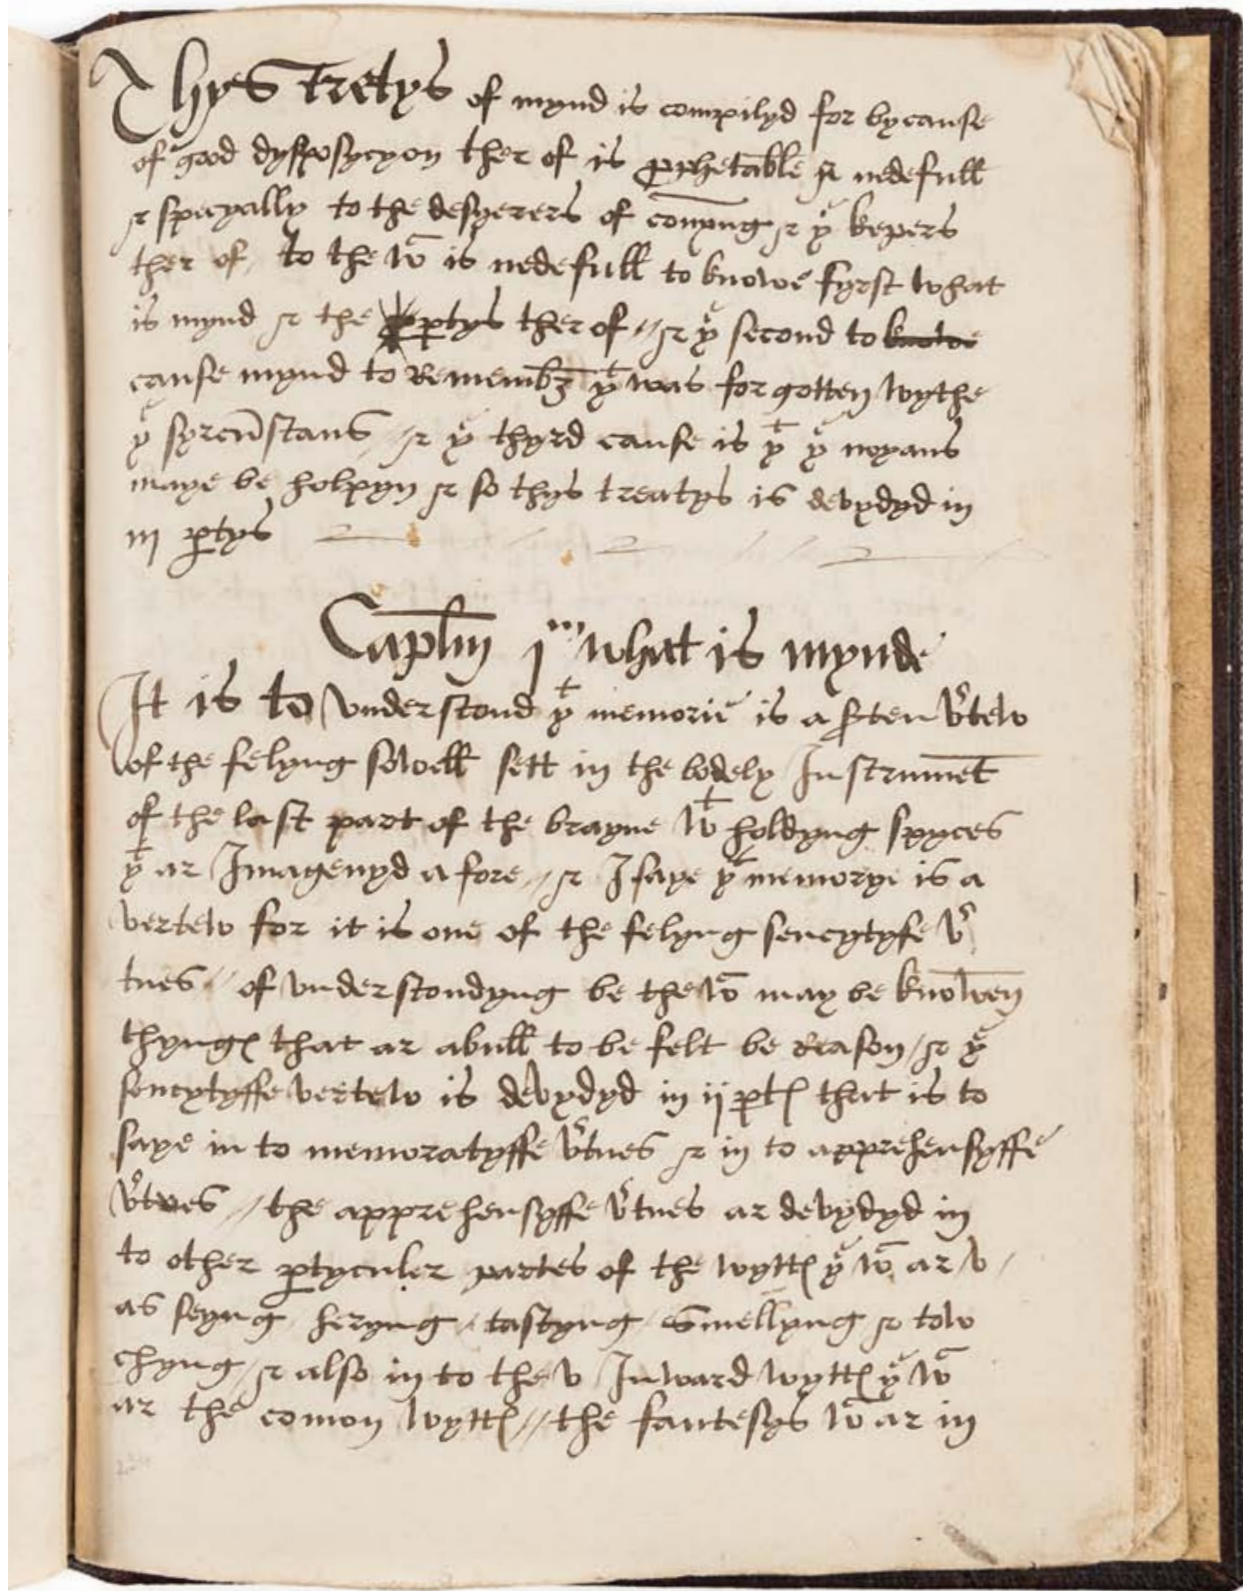 Thys Tretys of mynd is compilyd for bycause
of good dysposycyon ther of is prphetable & nedefull
& specyally to the desyerers of conyng & yͤ kepers
ther of to the wͨ is nedefull to knowe fyrst what
is mynd & the ptys ther of // & yͤ second to knowe
cause mynd to Remembr yͭ was forgotten wythe
yͤ syrcūstans / & yͤ thyrd cause is yͭ yͤ noyans
maye be holpyn & so thys treatys is devydyd in
iij ptys
Caplm jᵐ what is mynde
It is to vnderstond yͭ memorie is a sten vͬtew
of the felyng sowell sett in the bodely Instrumēt
of the last part of the brayne wͭ holdyng spyces
yͭ ar Imagenyd afore // & I saye yͭ memorye is a
vertew for it is one of the felyng sencytyfe vͬ
tues // of vnderstondyng be the wͨ may be knowen
thynges that ar abull to be felt be Reason / & yͤ
sencytyffe vertew is devydyd in ij ptes that is to
saye in to memoratyffe vͬtues & in to apprehensyffe
vͬtues // the apprehensyffe vͬtues ar devydyd in
to other ptyculer partes of the wyttes yͤ wͨ ar v /
as seyng heryng / tastyng / Smellyng & tow
chyng / & also in to the v Inward wyttes yͤ wͨ
ar the comon wyttes // the fantesys wͨ ar in